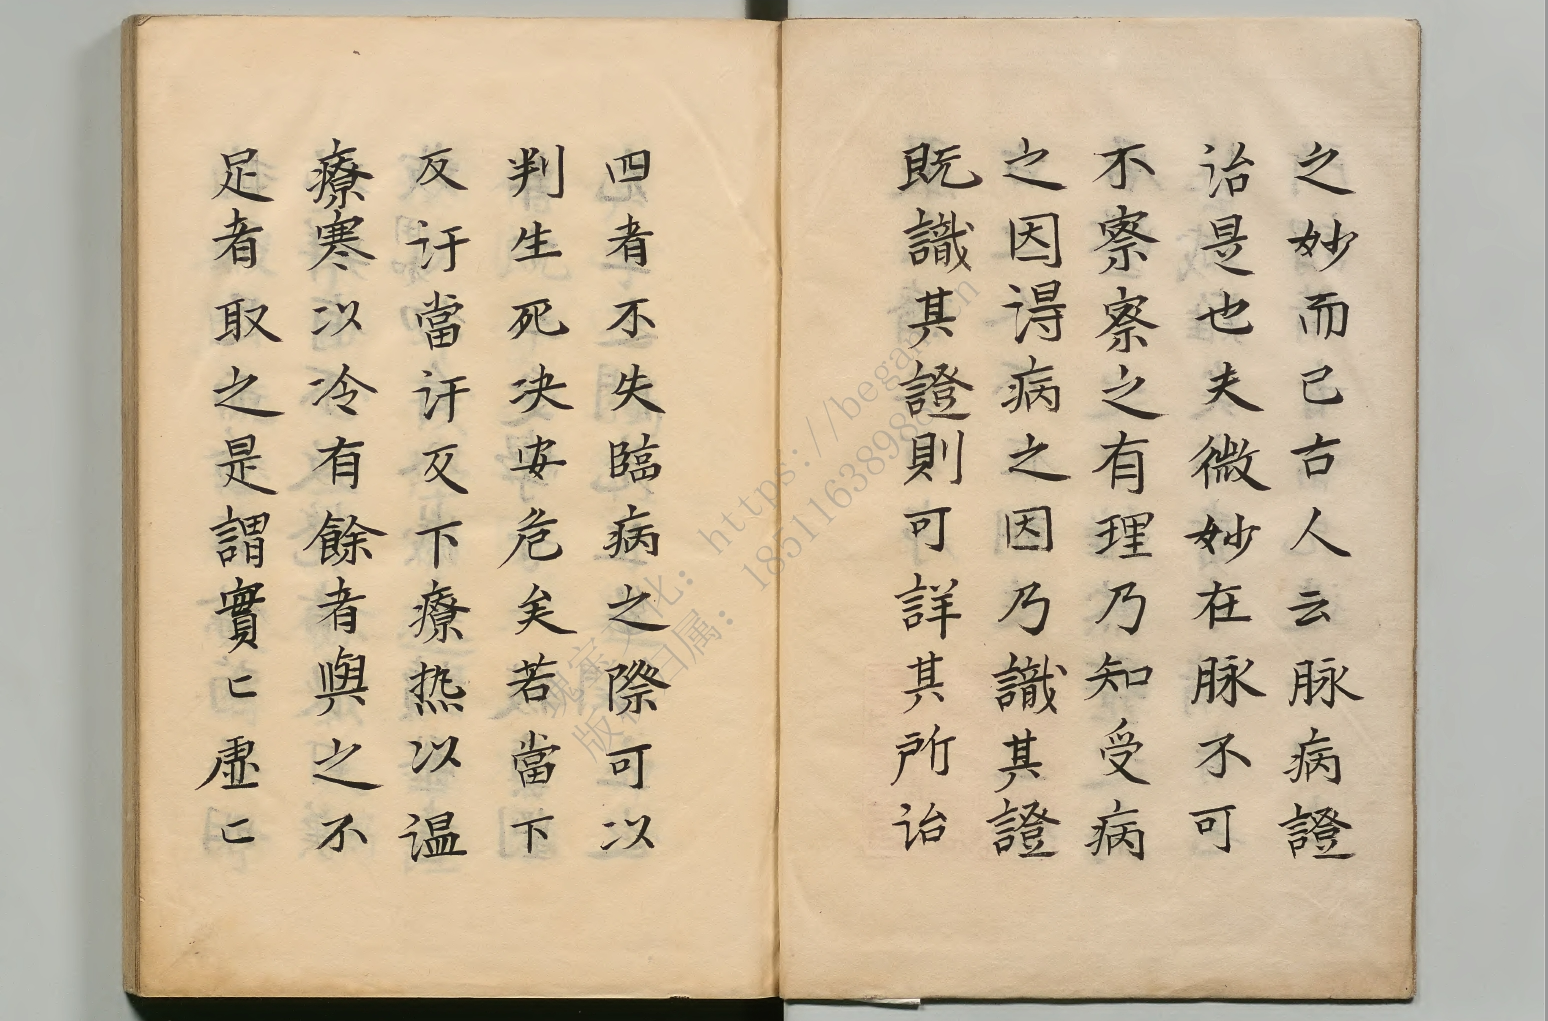 之妙而已古人云脉病證
治是也夫微妙在脉不可
不察察之有理乃知受病
之因得病之因乃識其證
既識其證則可詳其所治
四者不失臨病之際可以
判生死决安危矣若當下
反汗當汗反下療热以温
療寒以冷有餘者與之不
足者取之是謂實〻虚〻